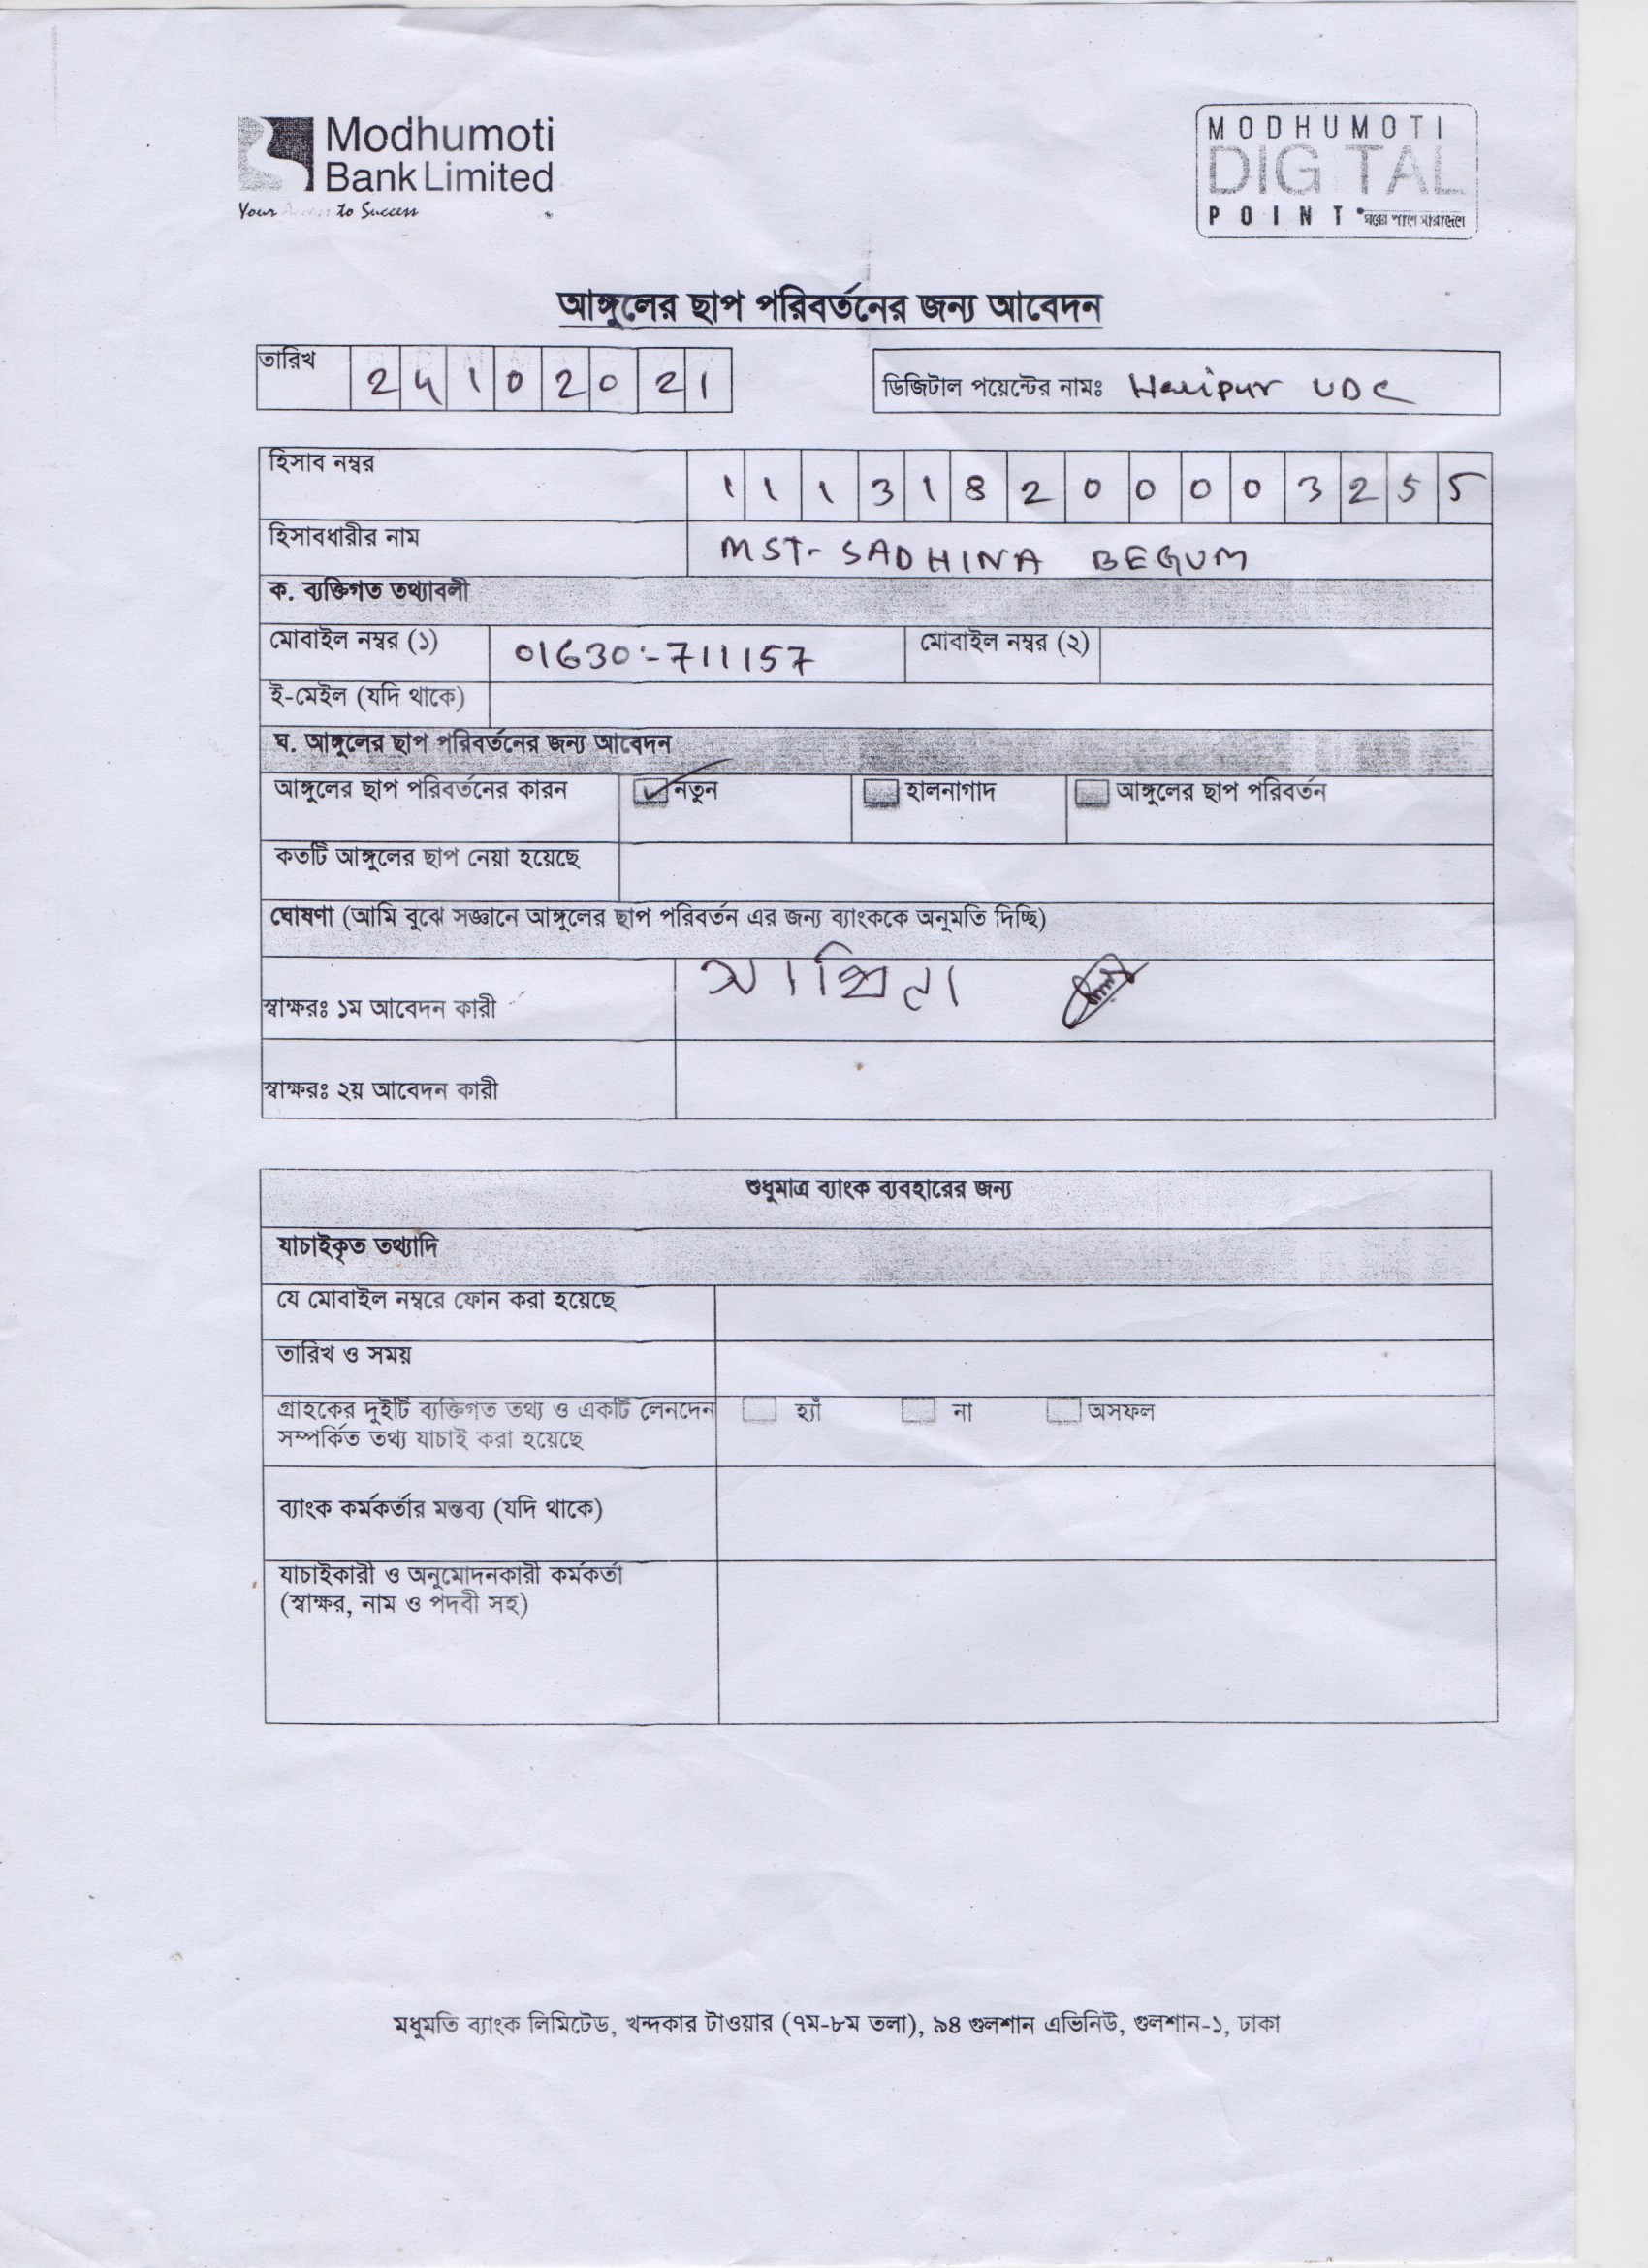 Modhumoti
Bank Limited
Your Access to Success
MODHUMOTI
DIGITAL
POINT
আঙ্গুলের ছাপ পরিবর্তনের জন্য আবেদন
তারিখ 2 4 1 0 2 0 2 1
ডিজিটাল পয়েন্টের নামঃ Haripur UDC
হিসাব নম্বর 1 1 1 3 1 8 2 0 0 0 0 3 2 5 5
হিসাবধারীর নাম MST- SADHINA BEGUM
ক. ব্যক্তিগত তথ্যাবলী
মোবাইল নম্বর (১) 01630:-711157 মোবাইল নম্বর (২)
ই-মেইল (যদি থাকে)
ঘ. আঙ্গুলের ছাপ পরিবর্তনের জন্য আবেদন
আঙ্গুলের ছাপ পরিবর্তনের কারন নতুন হালনাগাদ আঙ্গুলের ছাপ পরিবর্তন
কতটি আঙ্গুলের ছাপ নেয়া হয়েছে
ঘোষণা (আমি বুঝে সজ্ঞানে আঙ্গুলের ছাপ পরিবর্তন এর জন্য ব্যাংককে অনুমতি দিচ্ছি)
স্বাক্ষরঃ ১ম আবেদন কারী
স্বাক্ষরঃ ২য় আবেদন কারী
শুধুমাত্র ব্যাংক ব্যবহারের জন্য
যাচাইকৃত তথ্যাদি
যে মোবাইল নম্বরে ফোন করা হয়েছে
তারিখ ও সময়
গ্রাহকের দুইটি ব্যক্তিগত তথ্য ও একটি লেনদেন হ্যাঁ না অসফল
সম্পর্কিত তথ্য যাচাই করা হয়েছে
ব্যাংক কর্মকর্তার মন্তব্য (যদি থাকে)
যাচাইকারী ও অনুমোদনকারী কর্মকর্তা
(স্বাক্ষর, নাম ও পদবী সহ)
মধুমতি ব্যাংক লিমিটেড, খন্দকার টাওয়ার (৭ম-৮ম তলা), ৯৪ গুলশান এভিনিউ, গুলশান-১, ঢাকা